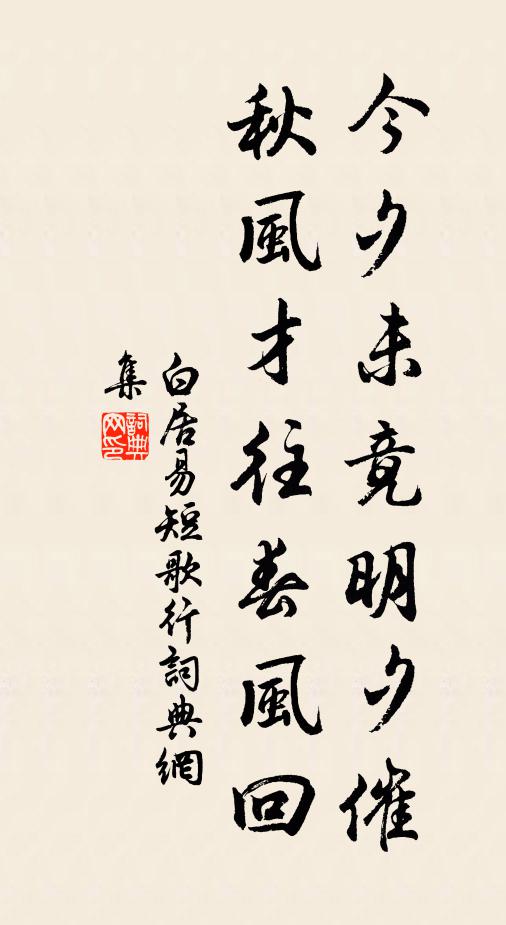 今夕未竟明夕催
秋風才往春風回
白居易短歌行詞典網
集
詞典
网印